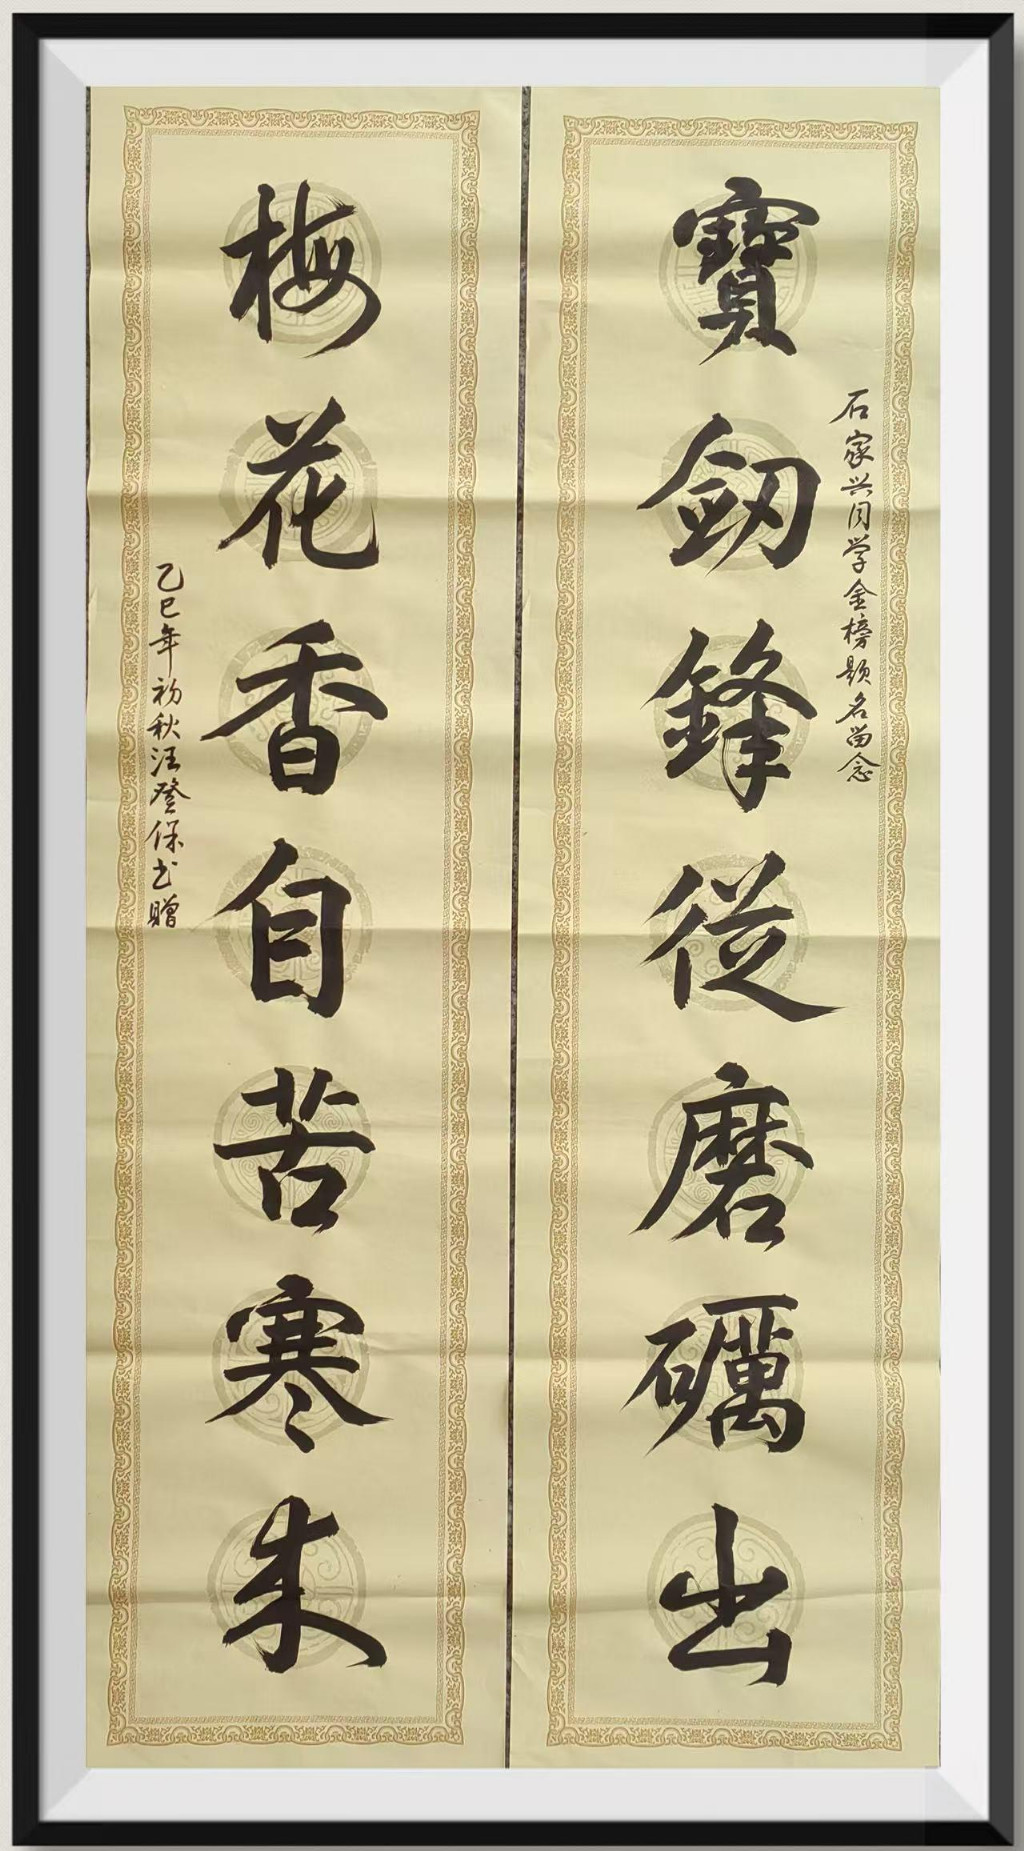 寶劒鋒從磨礪出
石家兴同学金榜题名留念
梅花香自苦寒来
乙巳年初秋汪登保书赠